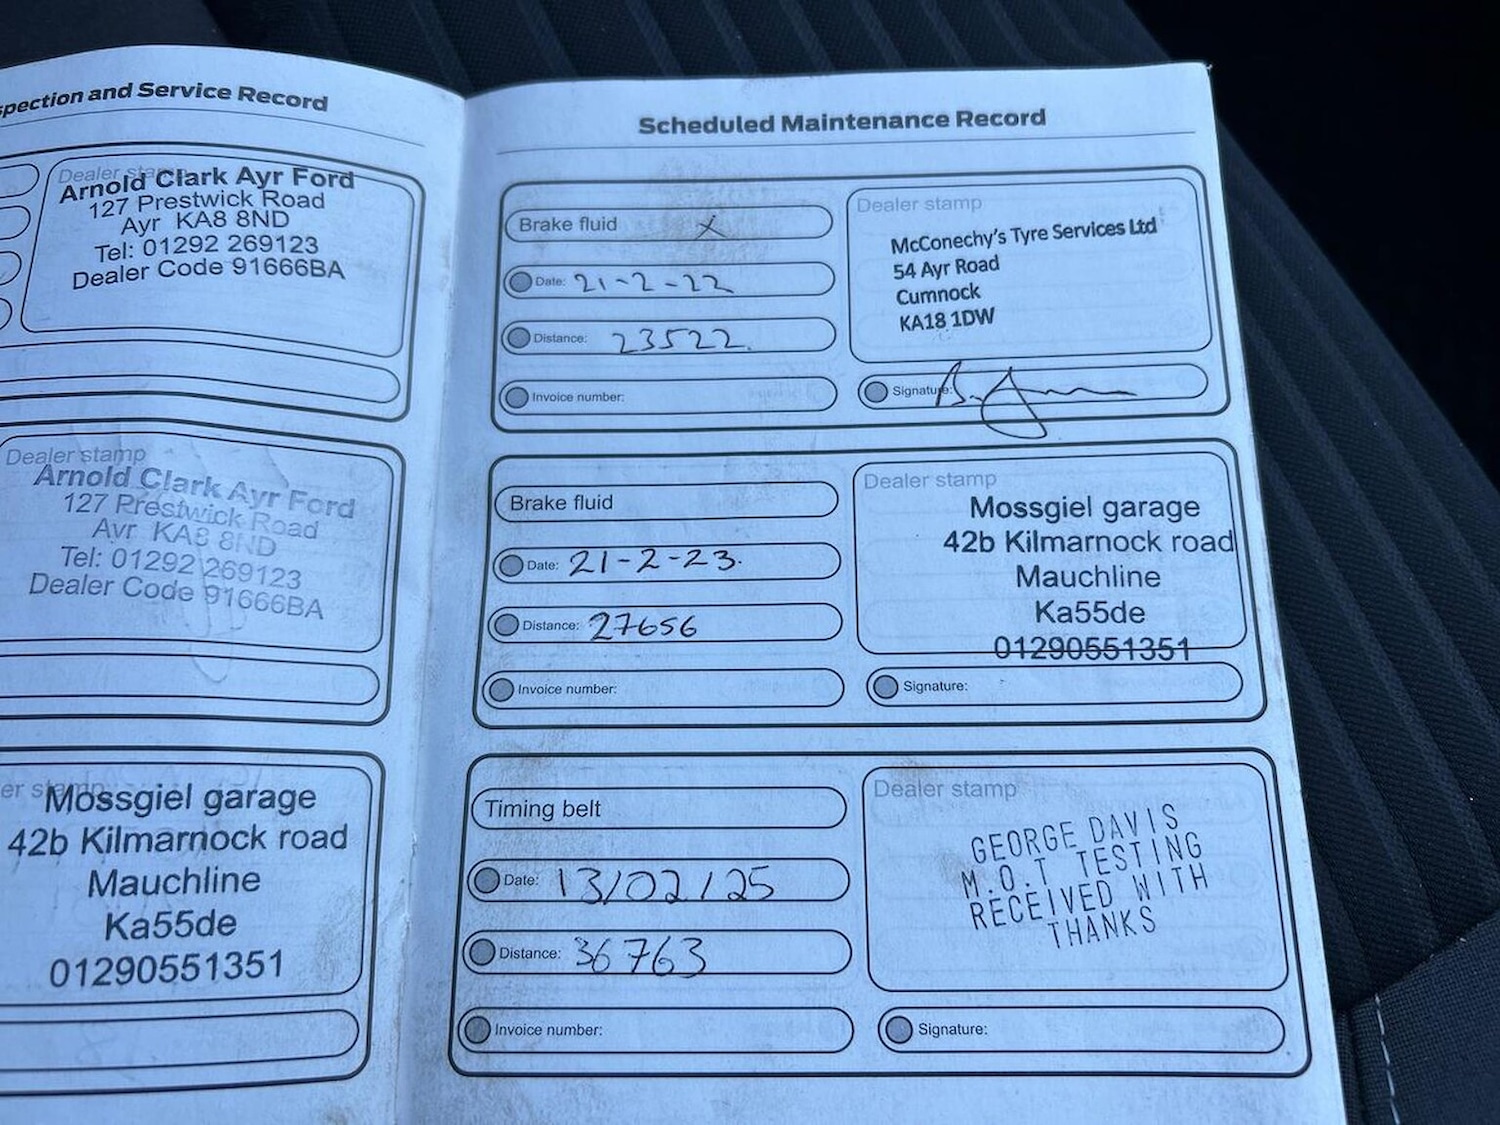 spection and Service Record
Dealer stamp
Arnold Clark Ayr Ford
127 Prestwick Road
Ayr KA8 8ND
Tel: 01292 269123
Dealer Code 91666BA
Dealer stamp
Arnold Clark Ayr Ford
127 Prestwick Road
Ayr KA8 8ND
Tel: 01292 269123
Dealer Code 91666BA
er stamp
Mossgiel garage
42b Kilmarnock road
Mauchline
Ka55de
01290551351
Scheduled Maintenance Record
Brake fluid X
Date: 21-2-22
Distance: 23522.
Invoice number:
Dealer stamp
McConechy's Tyre Services Ltd
54 Ayr Road
Cumnock
KA18 1DW
Signature:
Brake fluid
Date: 21-2-23.
Distance: 27656
Invoice number:
Dealer stamp
Mossgiel garage
42b Kilmarnock road
Mauchline
Ka55de
01290551351
Signature:
Timing belt
Date: 13/02/25
Distance: 36763
Invoice number:
Dealer stamp
GEORGE DAVIS
M.O.T TESTING
RECEIVED WITH
THANKS
Signature: